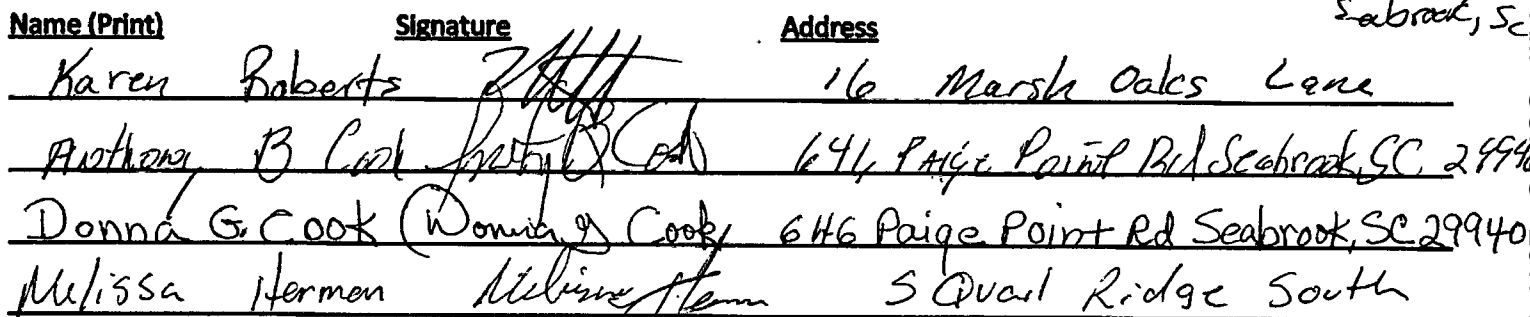 Seabrook, SC
Name (Print) Signature Address
Karen Roberts 16 Marsh Oaks Lane
Anthony B Cook Anthony B Cook 646 Paige Point Rd Seabrook, SC 29940
Donna G. Cook Donna G Cook 646 Paige Point Rd Seabrook, SC 29940
Melissa Herman Melissa Herman 5 Quail Ridge South